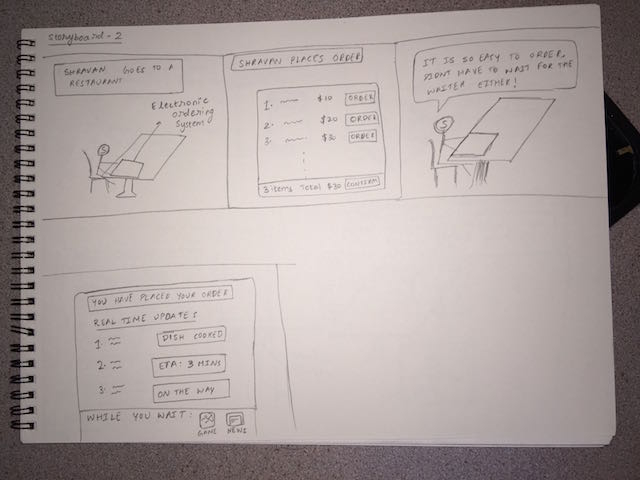 Storyboard - 2
SHRAVAN GOES TO A
RESTAURANT
Electronic
ordering
System
S
SHRAVAN PLACES ORDER
1. $10 ORDER
2. $20 ORDER
3. ORDER
3 items Total $30 CONFIRM
IT IS SO EASY TO ORDER,
DIDNT HAVE TO WAIT FOR THE
WAITER EITHER!
S
YOU HAVE PLACED YOUR ORDER
REAL TIME UPDATES
1. DISH COOKED
2. ETA: 3 MINS
3. ON THE WAY
WHILE YOU WAIT:
GAME NEWS